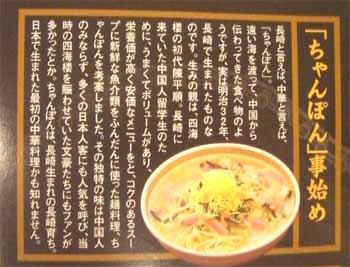 「ちゃんぽん」事始め
長崎と言えば、中華と言えば、
「ちゃんぽん」。
遠い海を渡って、中国から
伝わってきた食べ物のよ
うですが、実は明治32年、
長崎で生まれたものな
のです。生みの親は「四海
樓の初代陳平順。長崎に
来ていた中国人留学生のた
めに、うまくてボリュームがあり、
栄養価が高く安価なメニューをと、コクのあるスー
プに新鮮な魚介類をふんだんに使った麺料理、ち
ゃんぽんを考案しました。その独特の味は中国人
のみならず、多くの日本人客にも人気を呼び、当
時の四海樓を賑わせていた文豪たちにもファンが
多かったとか。ちゃんぽんは、長崎生まれの長崎育ち。
日本で生まれた最初の中華料理かも知れません。